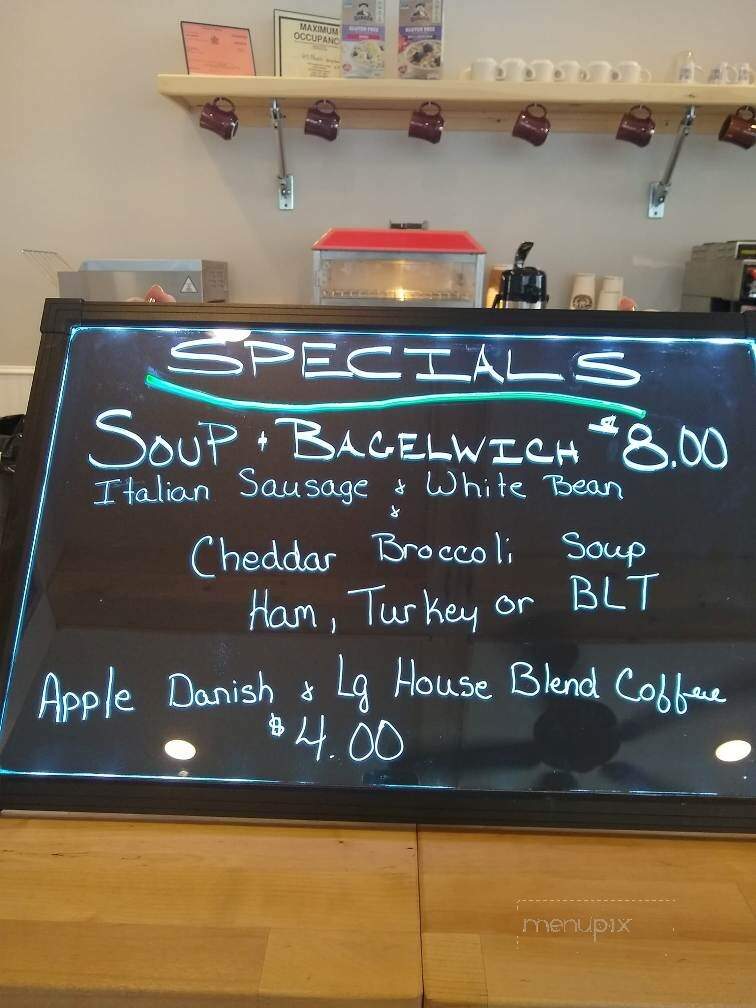 MAXIMUM
OCCUPANC
GLUTEN FREE
GLUTEN FREE
SPECIALS
SOUP + BAGELWICH $8.00
Italian Sausage & White Bean
&
Cheddar Broccoli Soup
Ham, Turkey or BLT
Apple Danish & Lg House Blend Coffee
$4.00
menupix